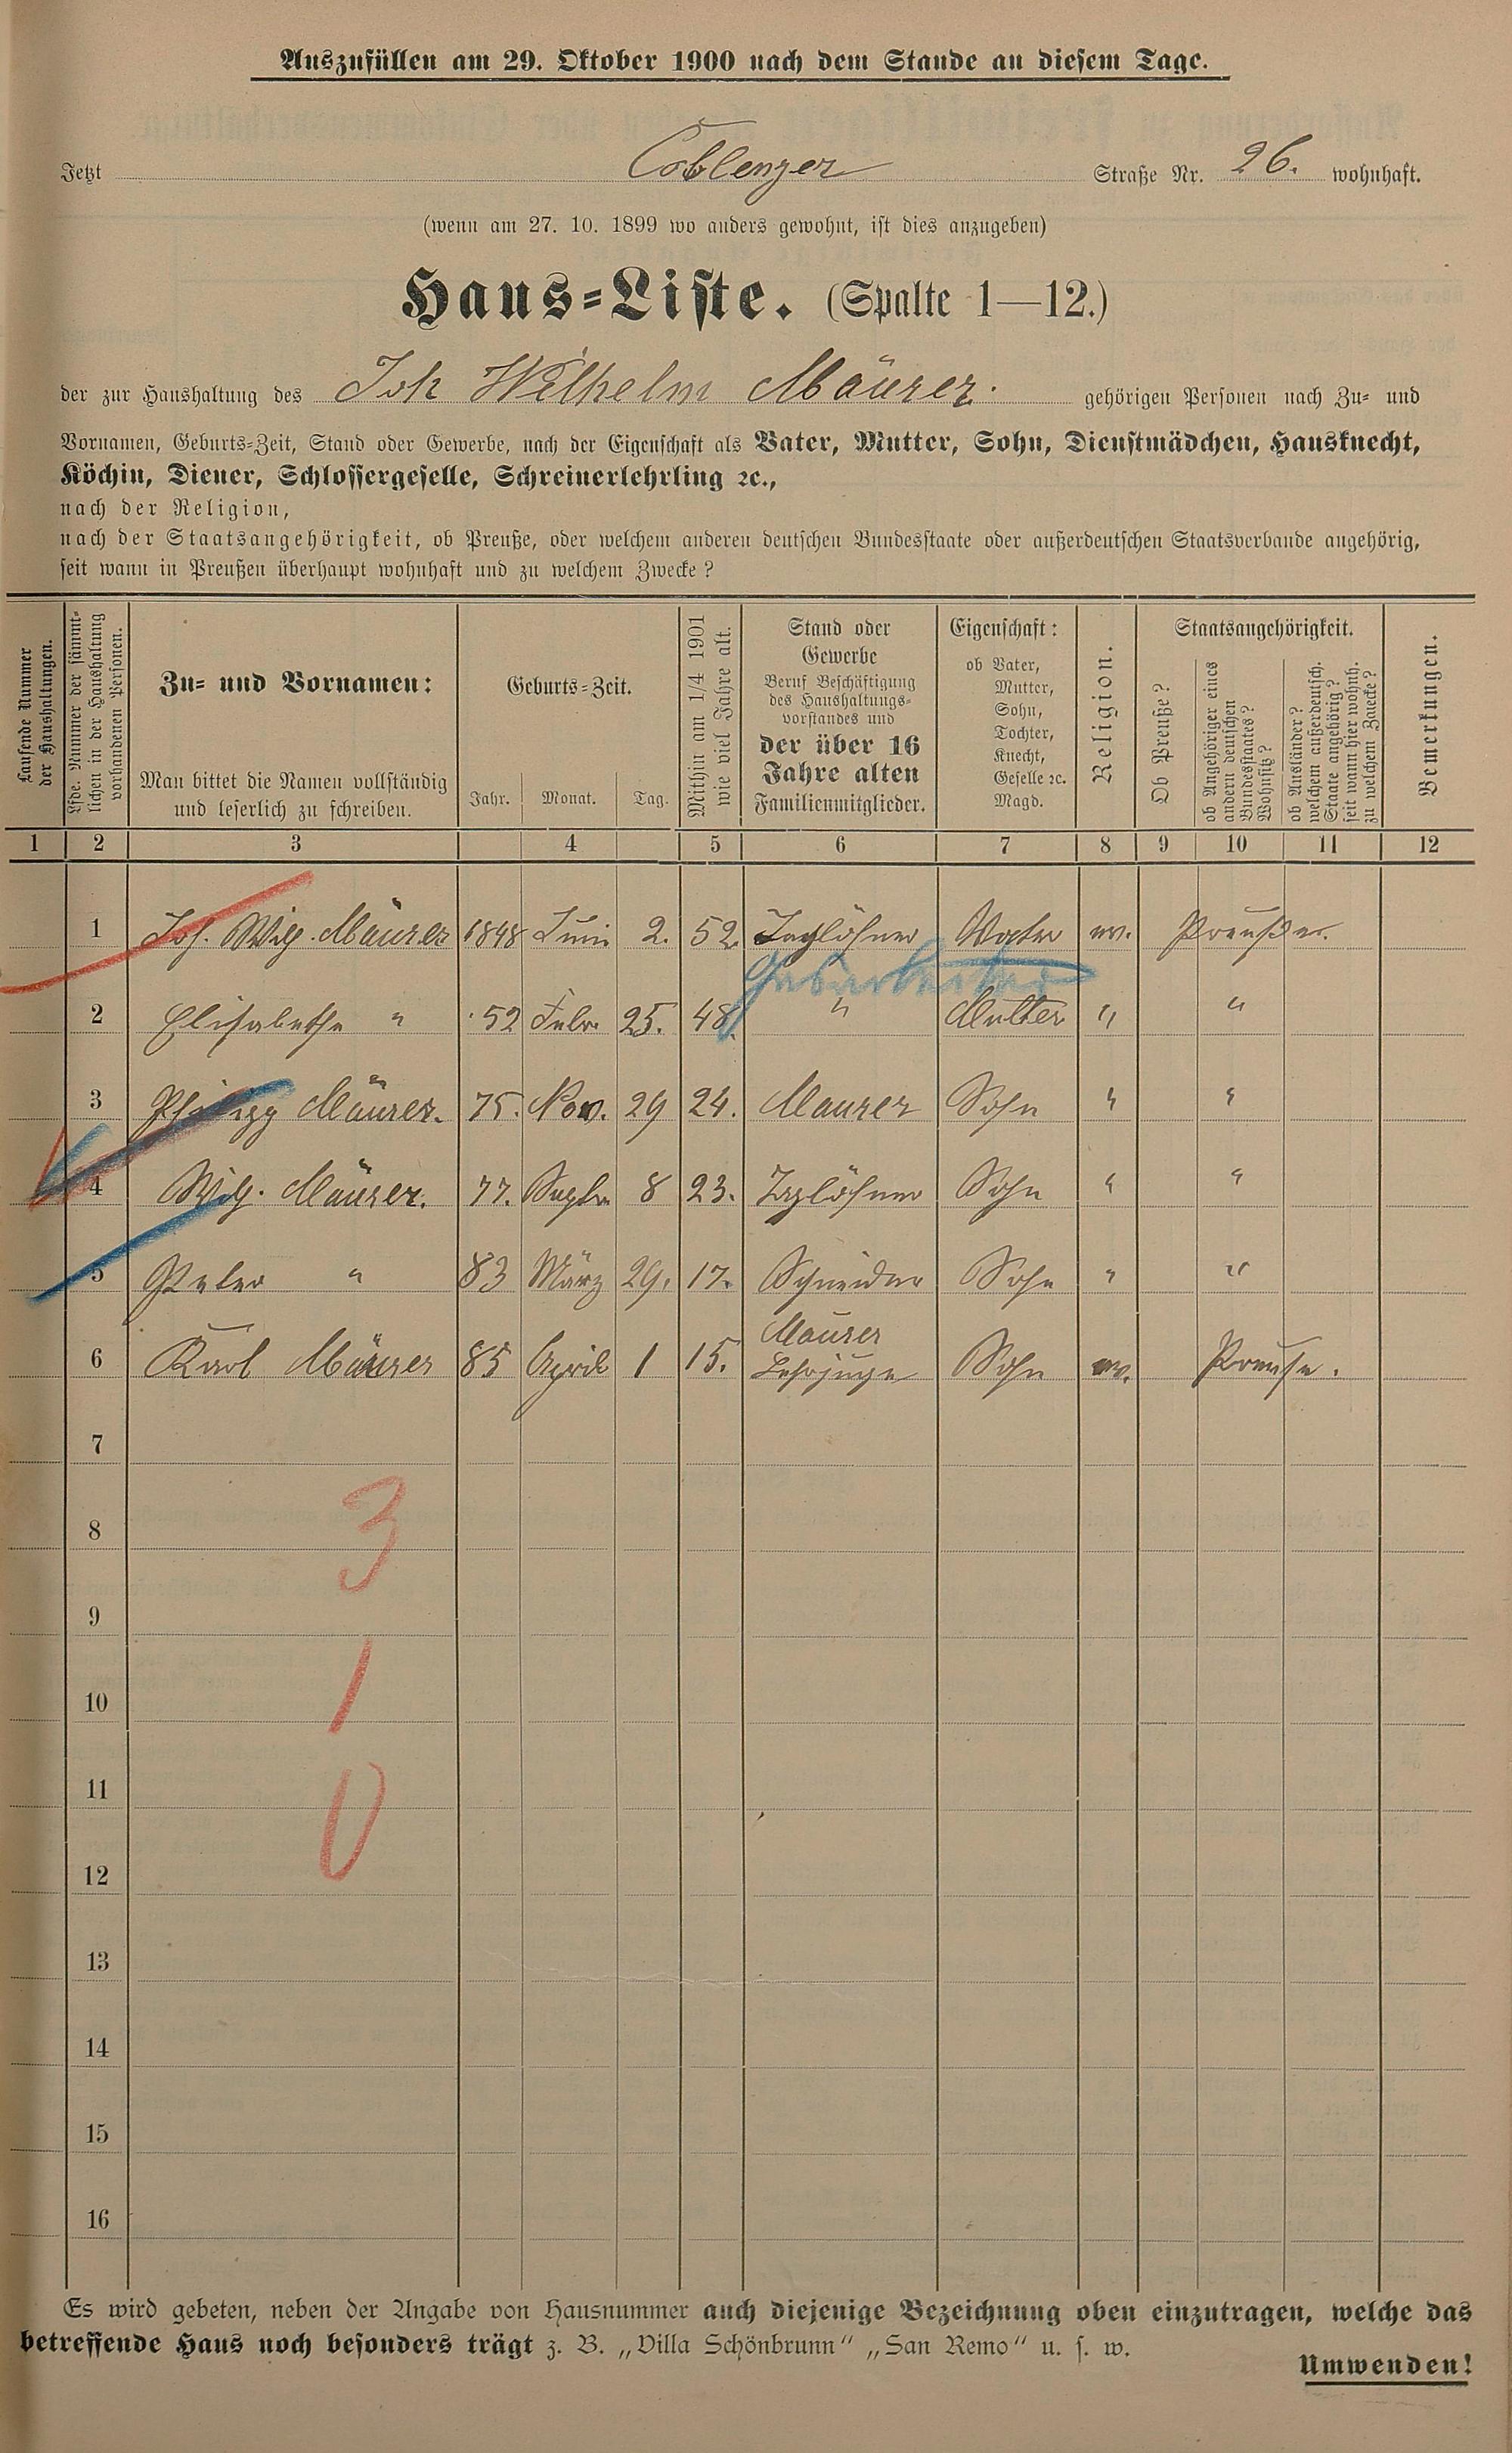 Auszufüllen am 29. Oktober 1900 nach dem Stande an diesem Tage.
Jetzt Coblenzer Straße Nr. 26. wohnhaft.
(wenn am 27. 10. 1899 wo anders gewohnt, ist dies anzugeben)
Haus-Liste. (Spalte 1—12.)
der zur Haushaltung des Joh Wilhelm Mäurer. gehörigen Personen nach Zu- und
Vornamen, Geburts-Zeit, Stand oder Gewerbe, nach der Eigenschaft als Vater, Mutter, Sohn, Dienstmädchen, Hausknecht,
Köchin, Diener, Schlossergeselle, Schreinerlehrling ꝛc.,
nach der Religion,
nach der Staatsangehörigkeit, ob Preuße, oder welchem anderen deutschen Bundesstaate oder außerdeutschen Staatsverbande angehörig,
seit wann in Preußen überhaupt wohnhaft und zu welchem Zwecke?
Laufende Nummer
der Haushaltungen.
Lfde. Nummer der sämmt-
lichen in der Haushaltung
vorhandenen Personen.
Zu- und Vornamen:
Man bittet die Namen vollständig
und leserlich zu schreiben.
Geburts-Zeit.
Jahr. Monat. Tag.
Mithin am 1/4 1901
wie viel Jahre alt.
Stand oder
Gewerbe
Beruf Beschäftigung
des Haushaltungs-
vorstandes und
der über 16
Jahre alten
Familienmitglieder.
Eigenschaft:
ob Vater,
Mutter,
Sohn,
Tochter,
Knecht,
Geselle ꝛc.
Magd.
Religion.
Staatsangehörigkeit.
Ob Preuße?
ob Angehöriger eines
andern deutschen
Bundesstaates?
Wohnsitz?
ob Ausländer?
welchem außerdeutsch.
Staate angehörig?
seit wann hier wohnh.
zu welchem Zwecke?
Bemerkungen.
1 2 3 4 5 6 7 8 9 10 11 12
1 Joh. Wilh. Mäurer 1848 Juni 2. 52. Taglöhner Vater ev. Preußer.
2 Elisabethe " 52 Febr. 25. 48. " Mutter " "
3 Philipp Mäurer. 75. Nov. 29 24. Maurer Sohn " "
4 Wilh. Mäurer. 77. Septbr 8 23. Taglöhner Sohn " "
5 Peter " 83 März 29. 17. Schneider Sohn " "
Maurer
6 Karl Mäurer 85 April 1 15. Lehrjunge Sohn ev. Preuße.
7
8 3
9
10 1
11
12 0
13
14
15
16
Es wird gebeten, neben der Angabe von Hausnummer auch diejenige Bezeichnung oben einzutragen, welche das
betreffende Haus noch besonders trägt z. B. „Villa Schönbrunn" „San Remo" u. s. w.
Umwenden!